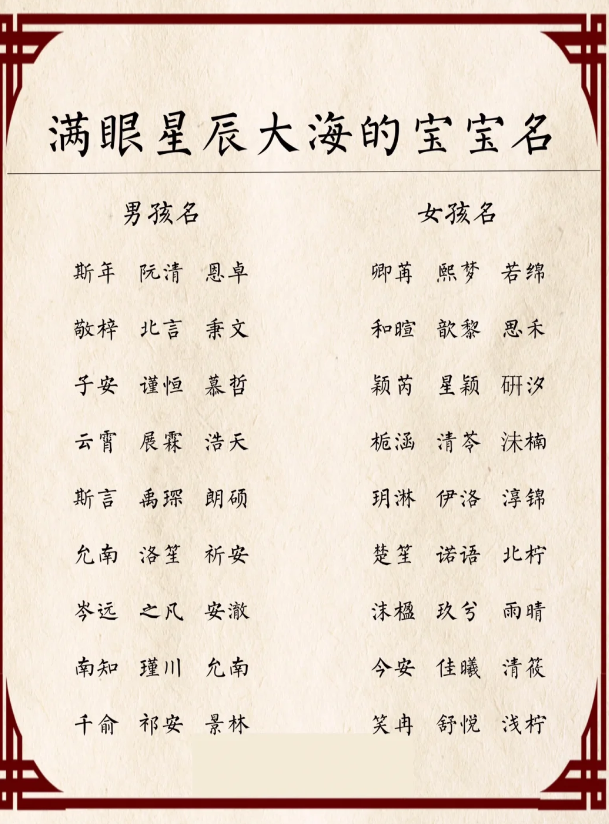 满眼星辰大海的宝宝名
男孩名 女孩名
斯年 阮清 恩卓 卿苒 熙梦 若绵
敬梓 北言 秉文 和暄 歆黎 思禾
子安 谨恒 慕哲 颖芮 星颖 研汐
云霄 展霖 浩天 栀涵 清苓 沫楠
斯言 禹琛 朗硕 玥淋 伊洛 淳锦
允南 洛笙 祈安 楚笙 诺语 北柠
岑远 之凡 安澈 沫楹 玖兮 雨晴
南知 瑾川 允南 今安 佳曦 清筱
千俞 祁安 景林 笑冉 舒悦 浅柠